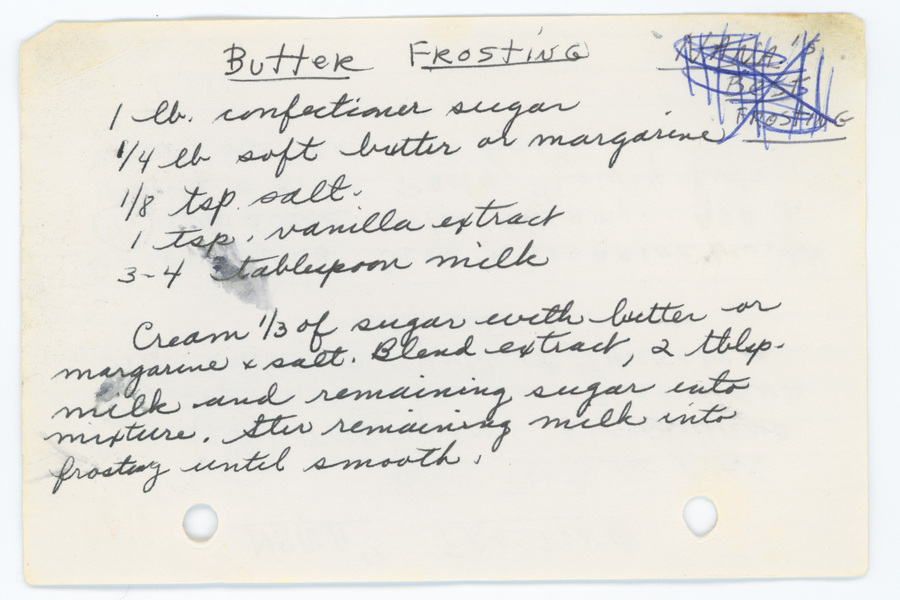 Butter Frosting
NANA'S
BEST
FROSTING
1 lb. confectioner sugar
1/4 lb soft butter or margarine
1/8 tsp. salt.
1 tsp. vanilla extract
3-4 tablespoon milk
Cream 1/3 of sugar with butter or
margarine & salt. Blend extract, 2 tblsp.
milk and remaining sugar into
mixture. Stir remaining milk into
frosting until smooth.